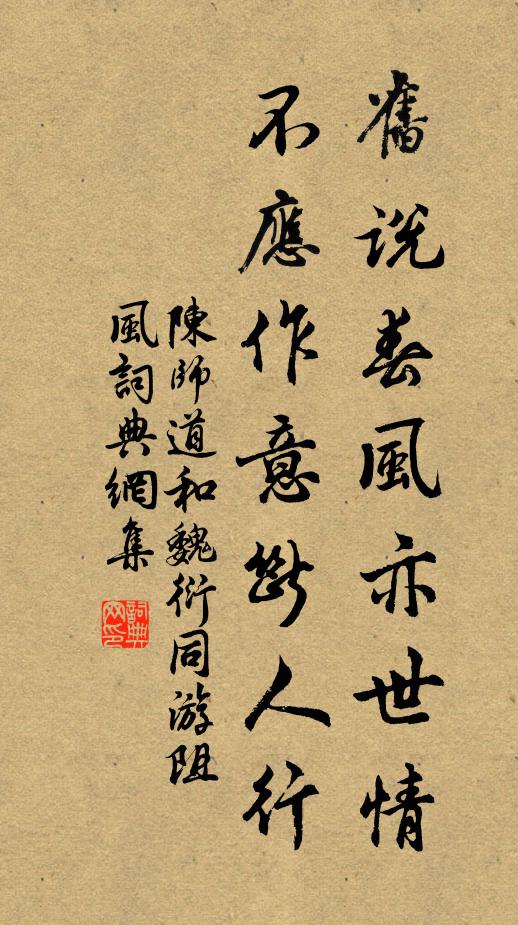 舊說春風亦世情
不應作意斷人行
陳師道和魏衍同游阻
風詞典網集
詞典
网印